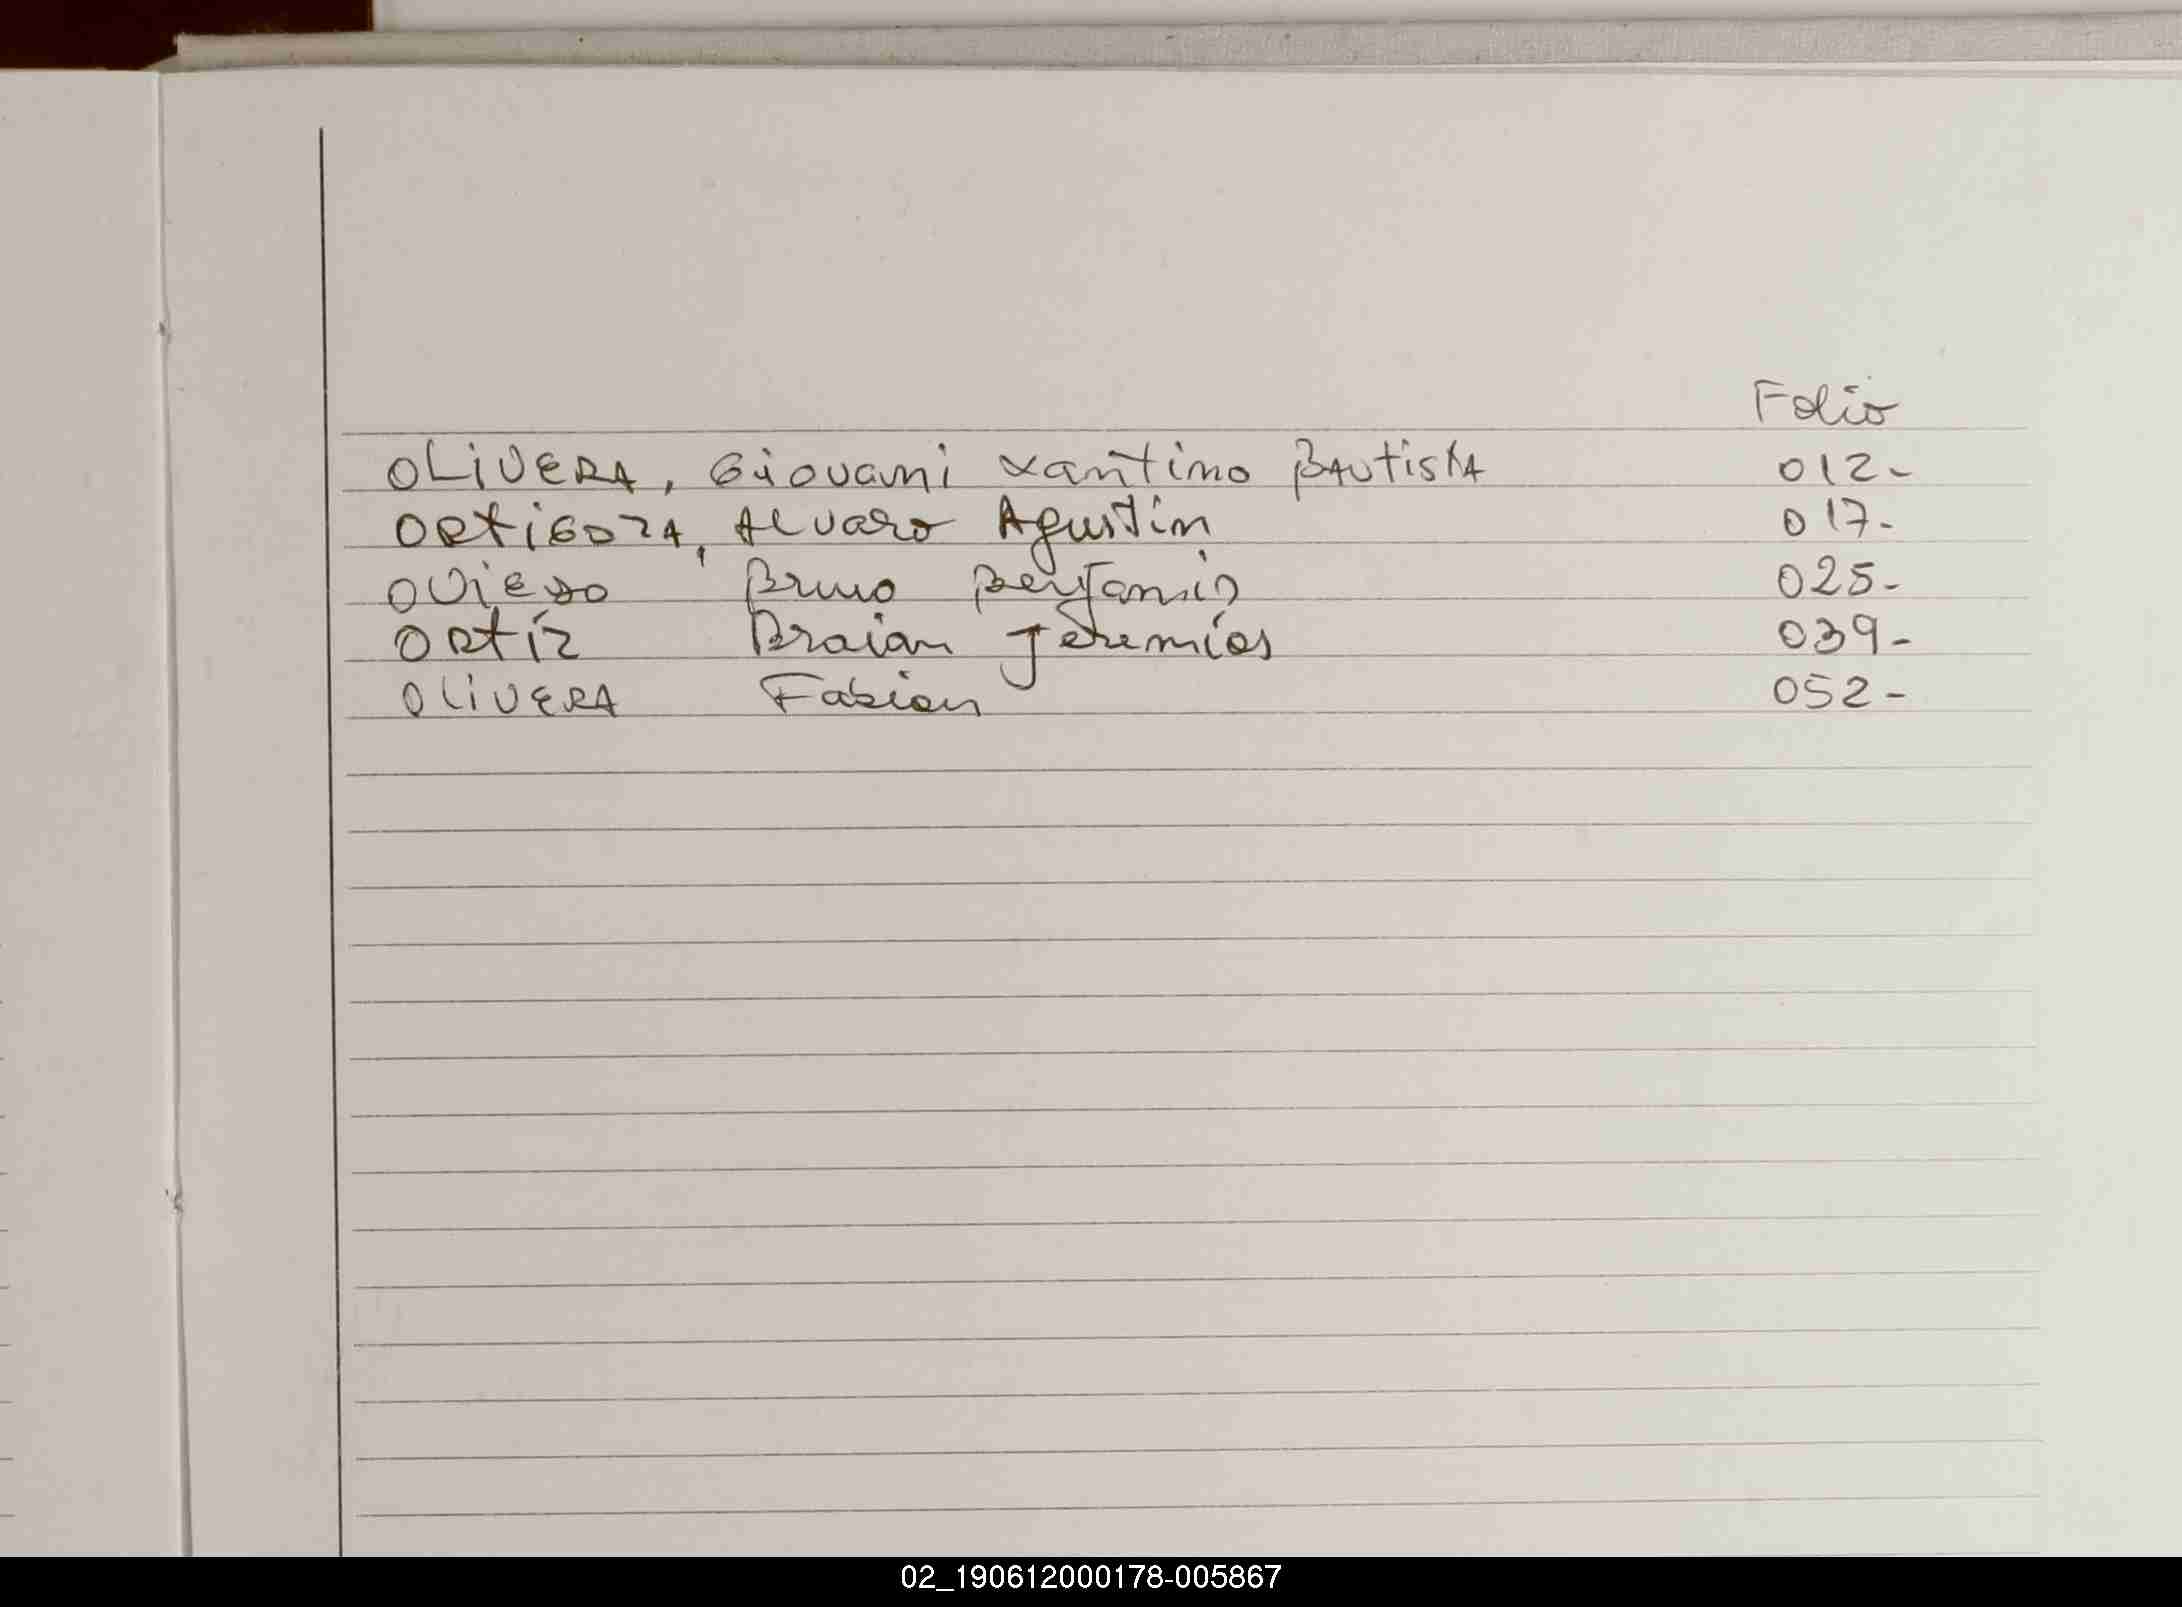 Folio
OLIVERA, Giovani Xantino BAUtistA 012-
ORtiGOZA, Alvaro Agustin 017-
OViEDO Bruno Benjamin 025-
ORtíz Braian Jeremías 039-
OLiVERA Fabian 052-
02_190612000178-005867